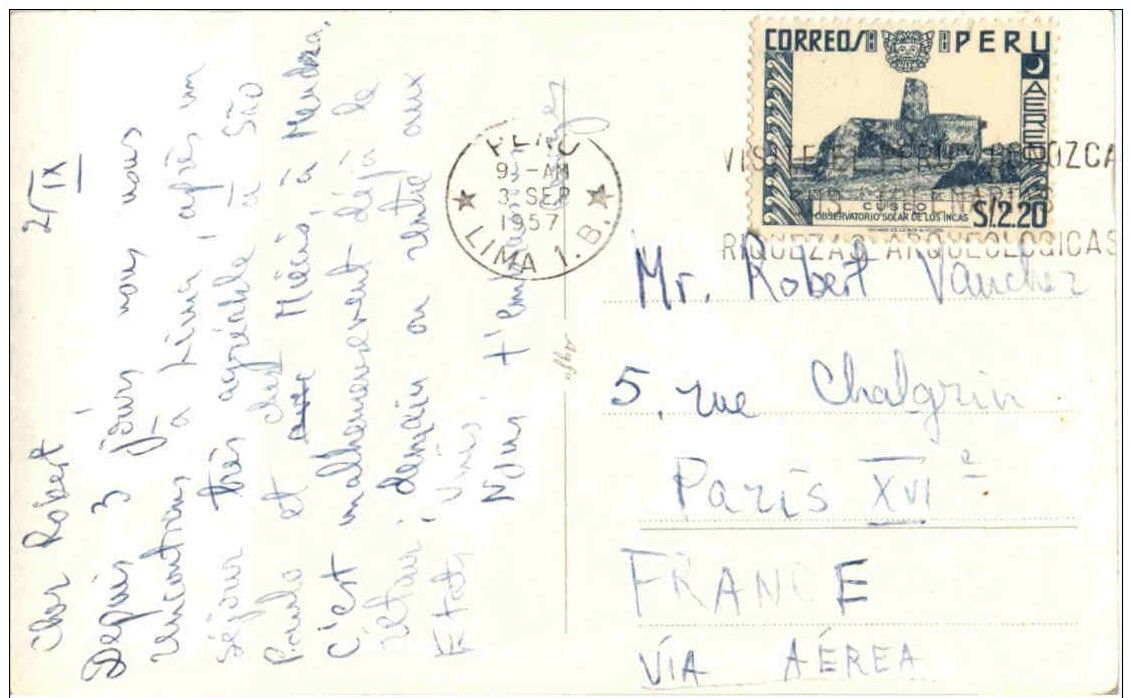 Cher Robert 2/IX
Depuis 3 jours nous nous
rencontrons à Lima, après un
séjour très agréable à São
Paulo et chez Miécis, à Mendoza.
C'est malheureusement déjà le
retour, demain on rentre aux
Etats Unis.
Nous t'embrassons
PERU
9-AM
3 SEP
1957
LIMA 1.B.
CORREOS PERU
AEREO
CUSCO
OBSERVATORIO SOLAR DE LOS INCAS S/2.20
VISITE EL PERU Y CONOZCA
SUS MILENARIAS
RIQUEZAS ARQUEOLOGICAS
Mr. Robert Vaucher
5, rue Chalgrin
Paris XVI e
FRANCE
VÍA AÉREA